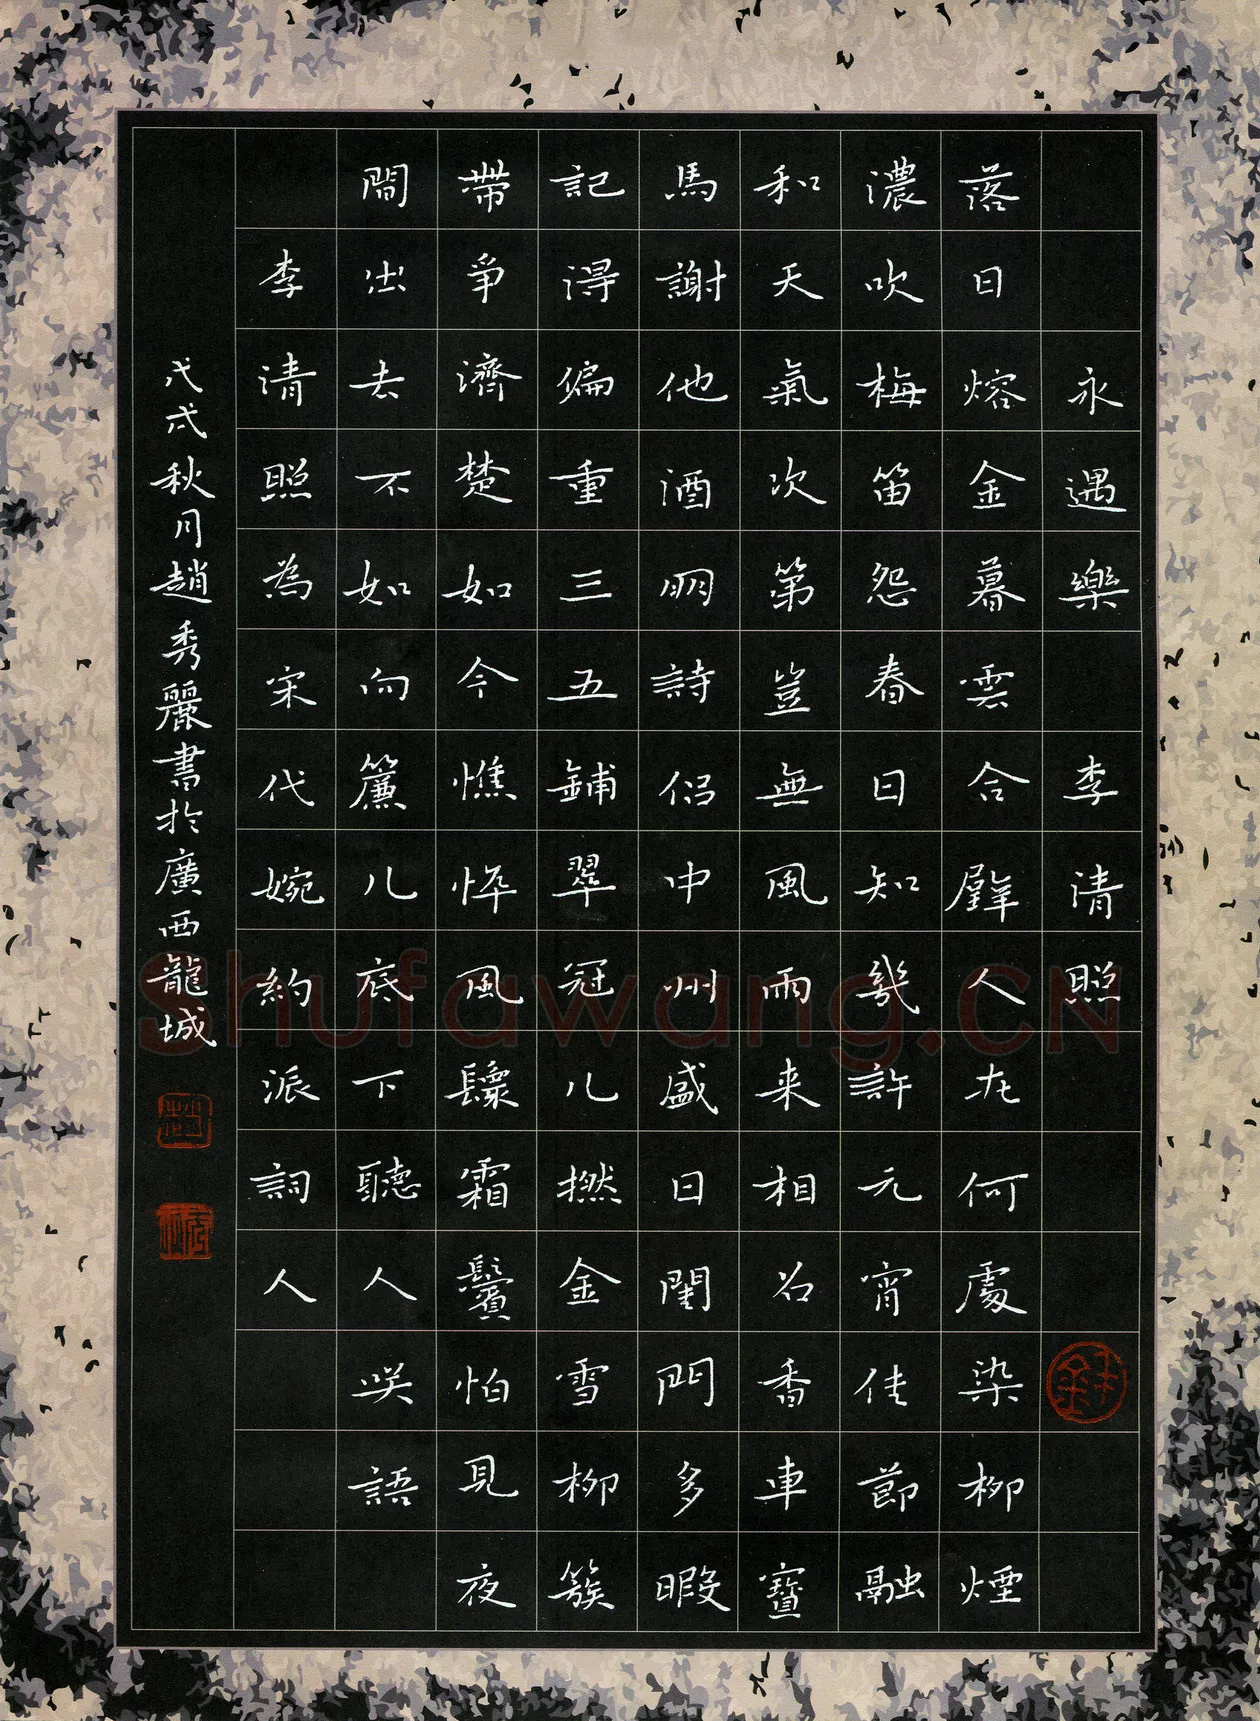 永遇樂 李清照
落日熔金暮雲合璧人在何處染柳煙
濃吹梅笛怨春日知幾許元宵佳節融
和天氣次第豈無風雨来相召香車寶
馬謝他酒朋詩侶中州盛日閨門多暇
記得偏重三五鋪翠冠儿撚金雪柳簇
帶爭濟楚如今憔悴風鬟霜鬢怕見夜
間出去不如向簾儿底下聽人咲語
李清照為宋代婉約派詞人
戊戌秋月趙秀麗書於廣西龍城
Shufawang.CN